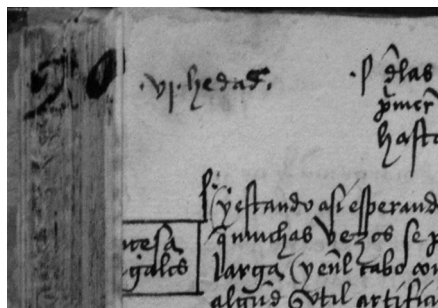 ·vj· hedad·
·s· dlas
pmer
hasta
y estando asi esperand
q muchas vezes se p
larga (y enl cabo con
algud vtil artifi
tesa
gales